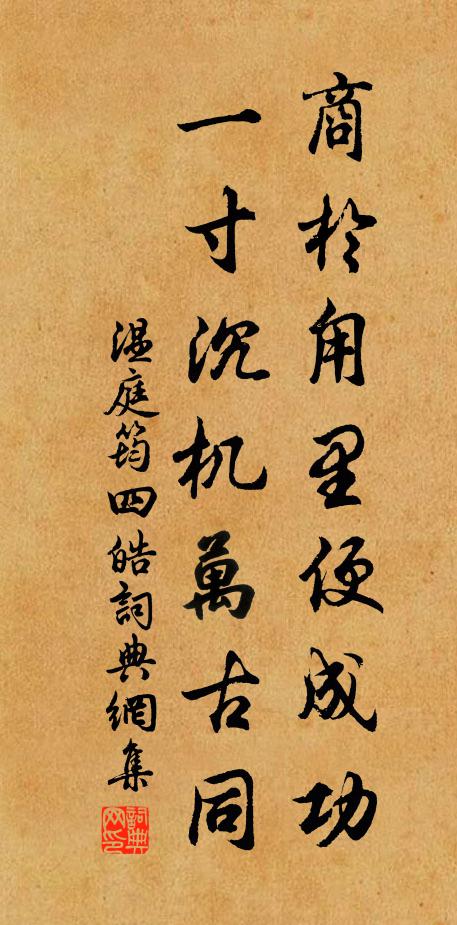 商於甪里便成功
一寸沉机萬古同
温庭筠四皓詞典網集
詞典网印